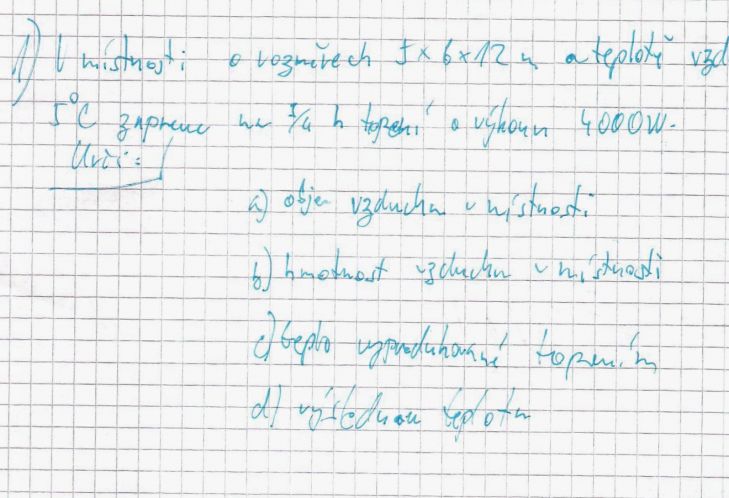 1) V místnosti o rozměrech 5×6×12 m a teplotě vzd
5°C zapneme na 3/4 h topení o výkonu 4000W.
Urči:
a) objem vzduchu v místnosti
b) hmotnost vzduchu v místnosti
c) teplo vyprodukované topením
d) výslednou teplotu